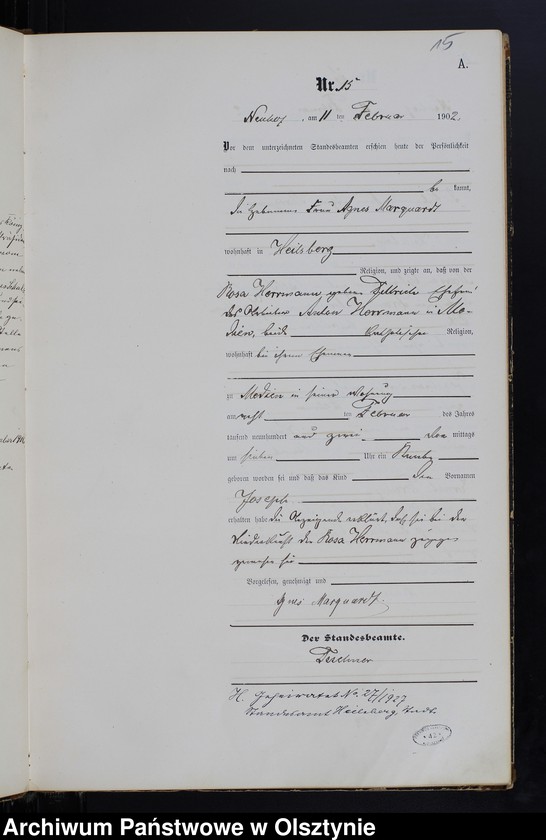 15
A.
Nr. 15
Neuhof, am 11 ten Februar 1902
Vor dem unterzeichneten Standesbeamten erschien heute der Persönlichkeit
nach
be kannt,
die Hebamme Frau Agnes Marquardt
wohnhaft in Heilsberg
Religion, und zeigte an, daß von der
Rosa Herrmann geborene Ehefrau
des Arbeiter Anton Herrmann in
beide Catholischer Religion,
wohnhaft bei ihrem Ehemann
zu in seiner Wohnung
am acht ten Februar des Jahres
tausend neunhundert und zwei mittags
um sieben Uhr ein Knabe
geboren worden sei und daß das Kind den Vornamen
Joseph
erhalten habe die Anzeigende erklärt, daß sie bei der
Niederkunft der Rosa Herrmann zugegen
gewesen sei
Vorgelesen, genehmigt und
Agnes Marquardt.
Der Standesbeamte.
H. Geheiratet No. 27/1927
Standesamt Heilsberg Stadt
Archiwum Państwowe w Olsztynie